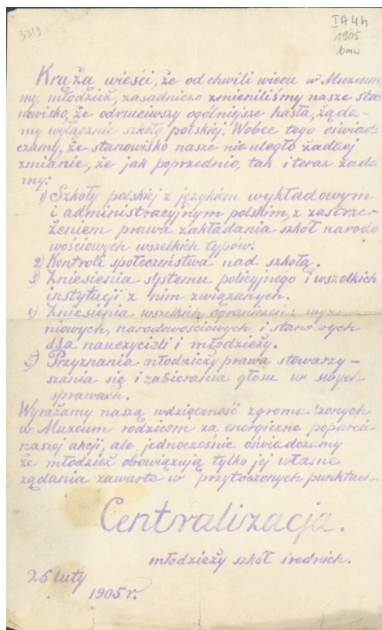 5319
IA4h
1905
Krążą wieści, że od chwili wiecu w Muzeum
my, młodzież, zasadniczo zmieniliśmy nasze sta-
nowisko, że odrzuciwszy ogólniejsze hasła, żąda-
my wyłącznie szkoły polskiej. Wobec tego oświad-
czamy, że stanowisko nasze nie uległo żadnej
zmianie, że jak poprzednio, tak i teraz żąda
my:
1) Szkoły polskiej z językiem wykładowym
i administracyjnym polskim, z zastrze-
żeniem prawa zakładania szkół narodo
wościowych wszelkich typów.
2) Kontroli społeczeństwa nad szkołą.
3) Zniesienia systemu policyjnego i wszelkich
instytucji z nim związanych.
4) Zniesienia wszelkich ograniczeń wyzna
niowych, narodowościowych i stanowych
dla nauczycieli i młodzieży.
5) Przyznania młodzieży prawa stowarzy-
szania się i zabierania głosu w swych
sprawach.
Wyrażamy naszą wdzięczność zgromadzonych
w Muzeum rodzicom za energiczne poparcie
naszej akcji, ale jednocześnie oświadczamy
że młodzież obowiązują tylko jej własne
żądania zawarte w przytoczonych punktach.
Centralizacja.
młodzieży szkół średnich.
26 luty
1905 r.